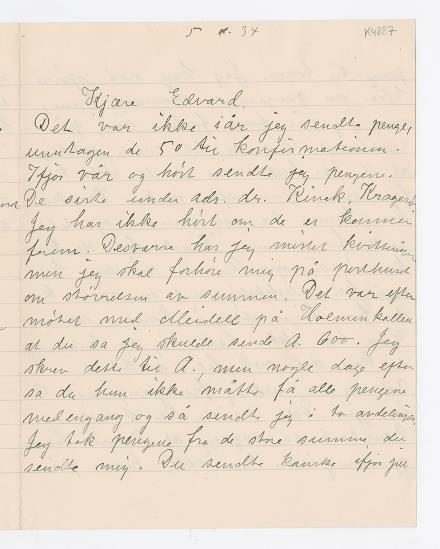 5 34
K4887
Kjære Edvard.
Det var ikke iår jeg sendte penger,
unntagen de 50 til konfirmationen.
Ifjor vår og høst sendte jeg pengene.
De siste under adr. dr. Kinck, Kragerø
Jeg har ikke hørt om de er kommet
frem. Desverre har jeg mistet kvitteringen
men jeg skal forhøre mig på posthuset
om størrelsen av summen. Det var efter
møtet med Meidell på Holmenkollen
at du sa jeg skulde sende A. 600. Jeg
skrev dette til A., men nogle dage efter
sa du hun ikke måtte få alle pengene
med engang og så sendte jeg i to avdelinger.
Jeg tok pengene fra de store summe du
sendte mig. Du sendte kanske ifjor jul